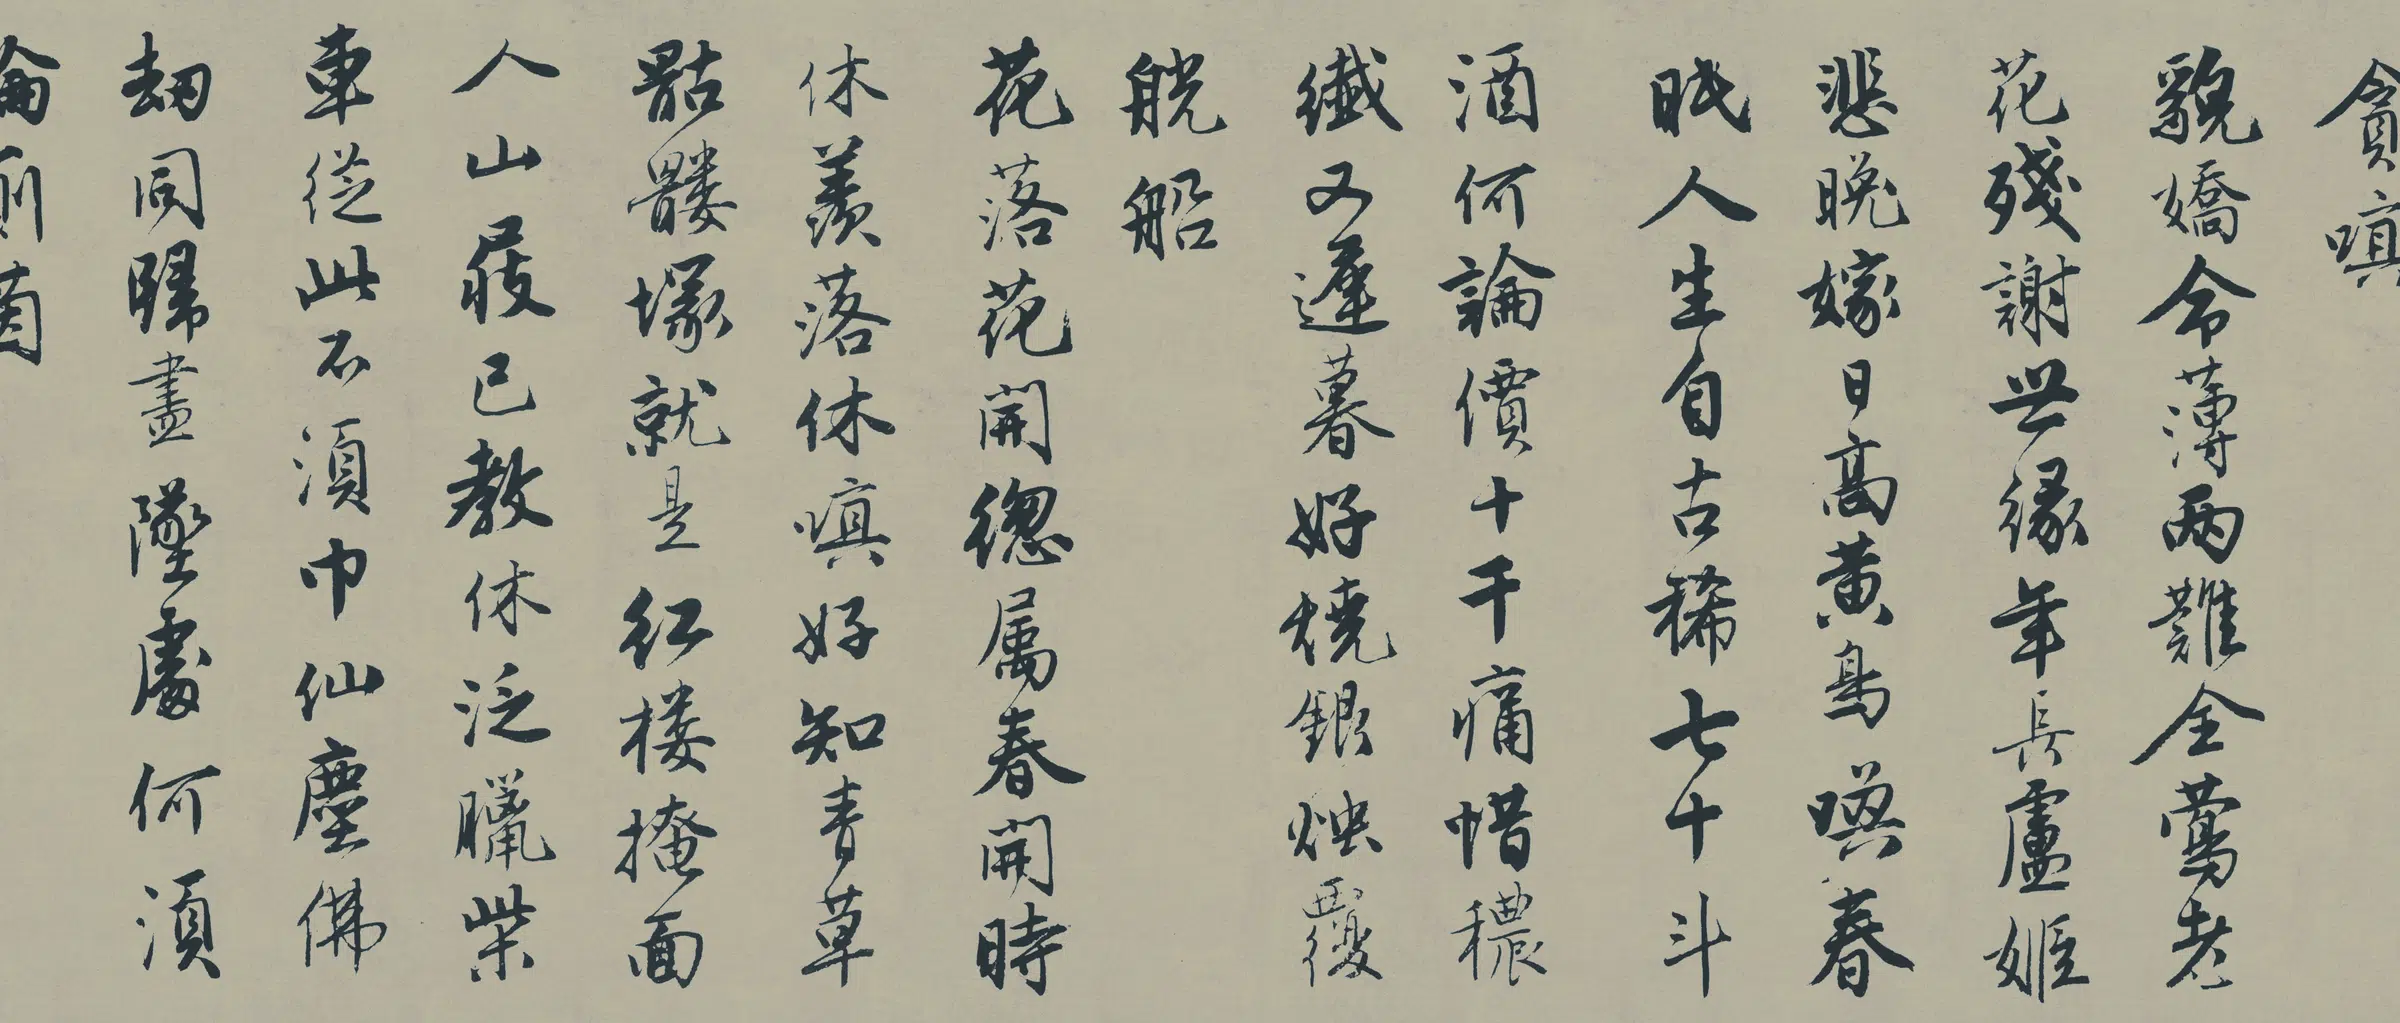 貪嗔
貌嬌命薄兩難全鶯老
花殘謝世緣年長盧姬
悲晚嫁日高黃鳥喚春
眠人生自古稀七十斗
酒何論價十千痛惜穠
纖又遲暮好燒銀燭覆
觥船
花落花開總屬春開時
休羨落休嗔好知青草
骷髏塚就是紅樓掩面
人山屐已教休泛臘柴
車從此不須巾仙塵佛
劫同歸盡墜處何須
論廁茵